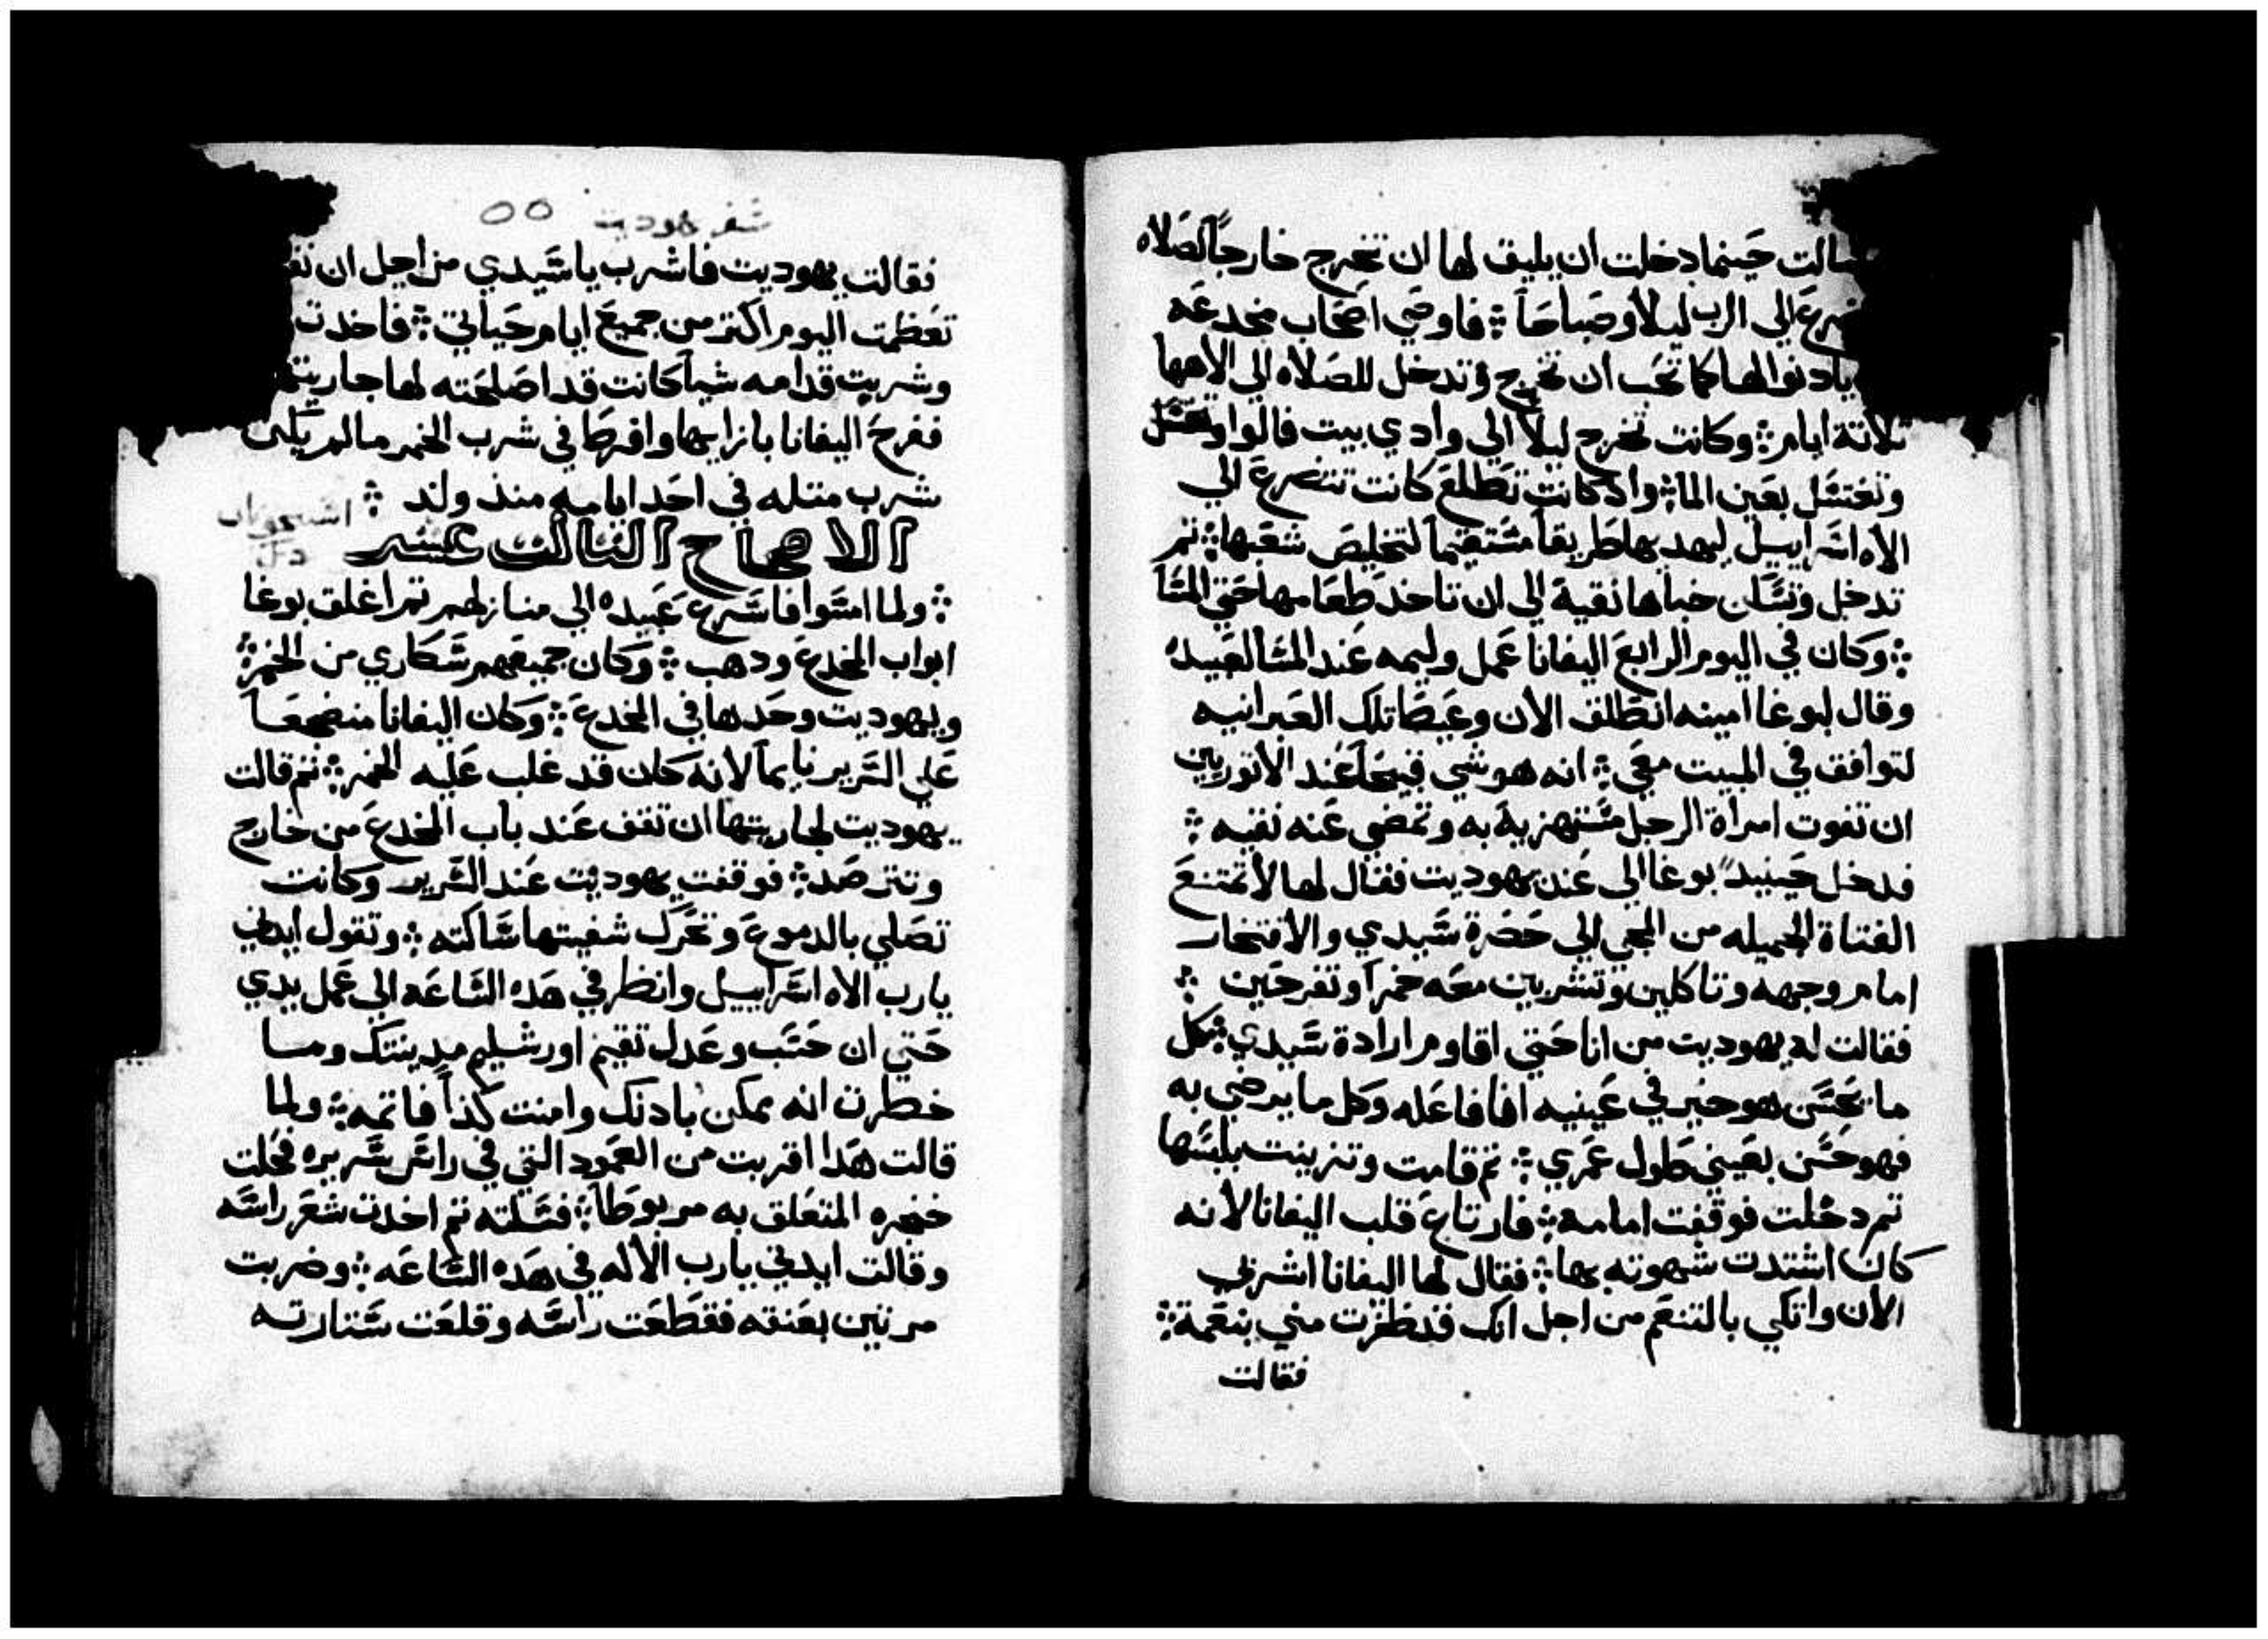 سالت حينما دخلت ان يليق لها ان تخرج خارجاً لصلاه
الي الرب ليلاً وصباحاً ܀ فاوصي اصحاب مخدعه
يادنوا لها كما تحب ان تخرج وتدخل للصلاه الي الاهها
تلاتة ايام ܀ وكانت تخرج ليلاً الي وادي بيت فالوا
وتغتسل بعين الما ܀ واد كانت تطلع كانت تتضرع الي
الاه اسراييل ليهديها طريقاً مستقيماً لتخليص شعبها ܀ تم
تدخل وتسكن خباها نقية الي ان تاخد طعامها حتي المسا
܀ وكان في اليوم الرابع اليفانا عمل وليمه عند المسا لعبيده
وقال لبوغا امينه انطلق الان وعظ تلك العبرانيه
لتوافق في المبيت معي ܀ انه هو شي قبيحاً عند الاتوريين
ان تفوت امراة الرجل مستهزية به وتمضي عنه نقيه ܀
فدخل حينيد بوغا الي عند يهوديت فقال لها لا تمتنع
الفتاة الجميله من المجي الي حضرة سيدي والافتخار
امام وجهه وتاكلين وتشربين معه خمراً وتفرحين ܀
فقالت له يهوديت من انا حتي اقاوم ارادة سيدي ܀ كل
ما يحسن هو خير في عينيه انا فاعله وكل ما يرضي به
فهو حسن بعيني طول عمري ܀ تم قامت وتزينت بلبسها
تم دخلت فوقفت امامه ܀ فارتاع قلب اليفانا لانه
كان اشتدت شهوته بها ܀ فقال لها اليفانا اشربي
الان واتكي بالتنعم من اجل انك قد ظفرت مني بنعمة ܀
فقالت
سفر يهوديت ٥٥
فقالت يهوديت فاشرب يا سيدي من اجل ان
تعظمت اليوم اكتر من جميع ايام حياتي ܀ فاخدت
وشربت قدامه شياً كانت قد اصلحته لها جاريتها
ففرح اليفانا بازايها وافرط في شرب الخمر ما لم يكن
شرب متله في احد ايامه مند ولد ܀
الاصحاح التالت عشر
܀ ولما امسوا فاسرع عبيده الي منازلهم تم اغلق بوغا
ابواب المخدع ودهب ܀ وكان جميعهم سكاري من الخمر ܀
ويهوديت وحدها في المخدع ܀ وكان اليفانا منضجعاً
علي السرير نايماً لانه كان قد غلب عليه الخمر ܀ تم قالت
يهوديت لجاريتها ان تقف عند باب المخدع من خارج
وتترصد ܀ فوقفت يهوديت عند السرير وكانت
تصلي بالدموع وتحرك شفيتها ساكته ܀ وتقول ايدني
يارب الاه اسراييل وانظر في هده الساعه الي عمل يدي
حتي ان حسب وعدك تقيم اورشليم مدينتك وما
خطرت انه يمكن بادنك وامنت كذا فاتمه ܀ ولما
قالت هدا اقربت من العمود التي في راس سريره فحلت
خنجره المتعلق به مربوطاً ܀ فسلته تم اخدت شعر راسه
وقالت ايدني يارب الاله في هده الساعه ܀ وضربت
مرتين بعنقه فقطعت راسه وقلعت ستارته